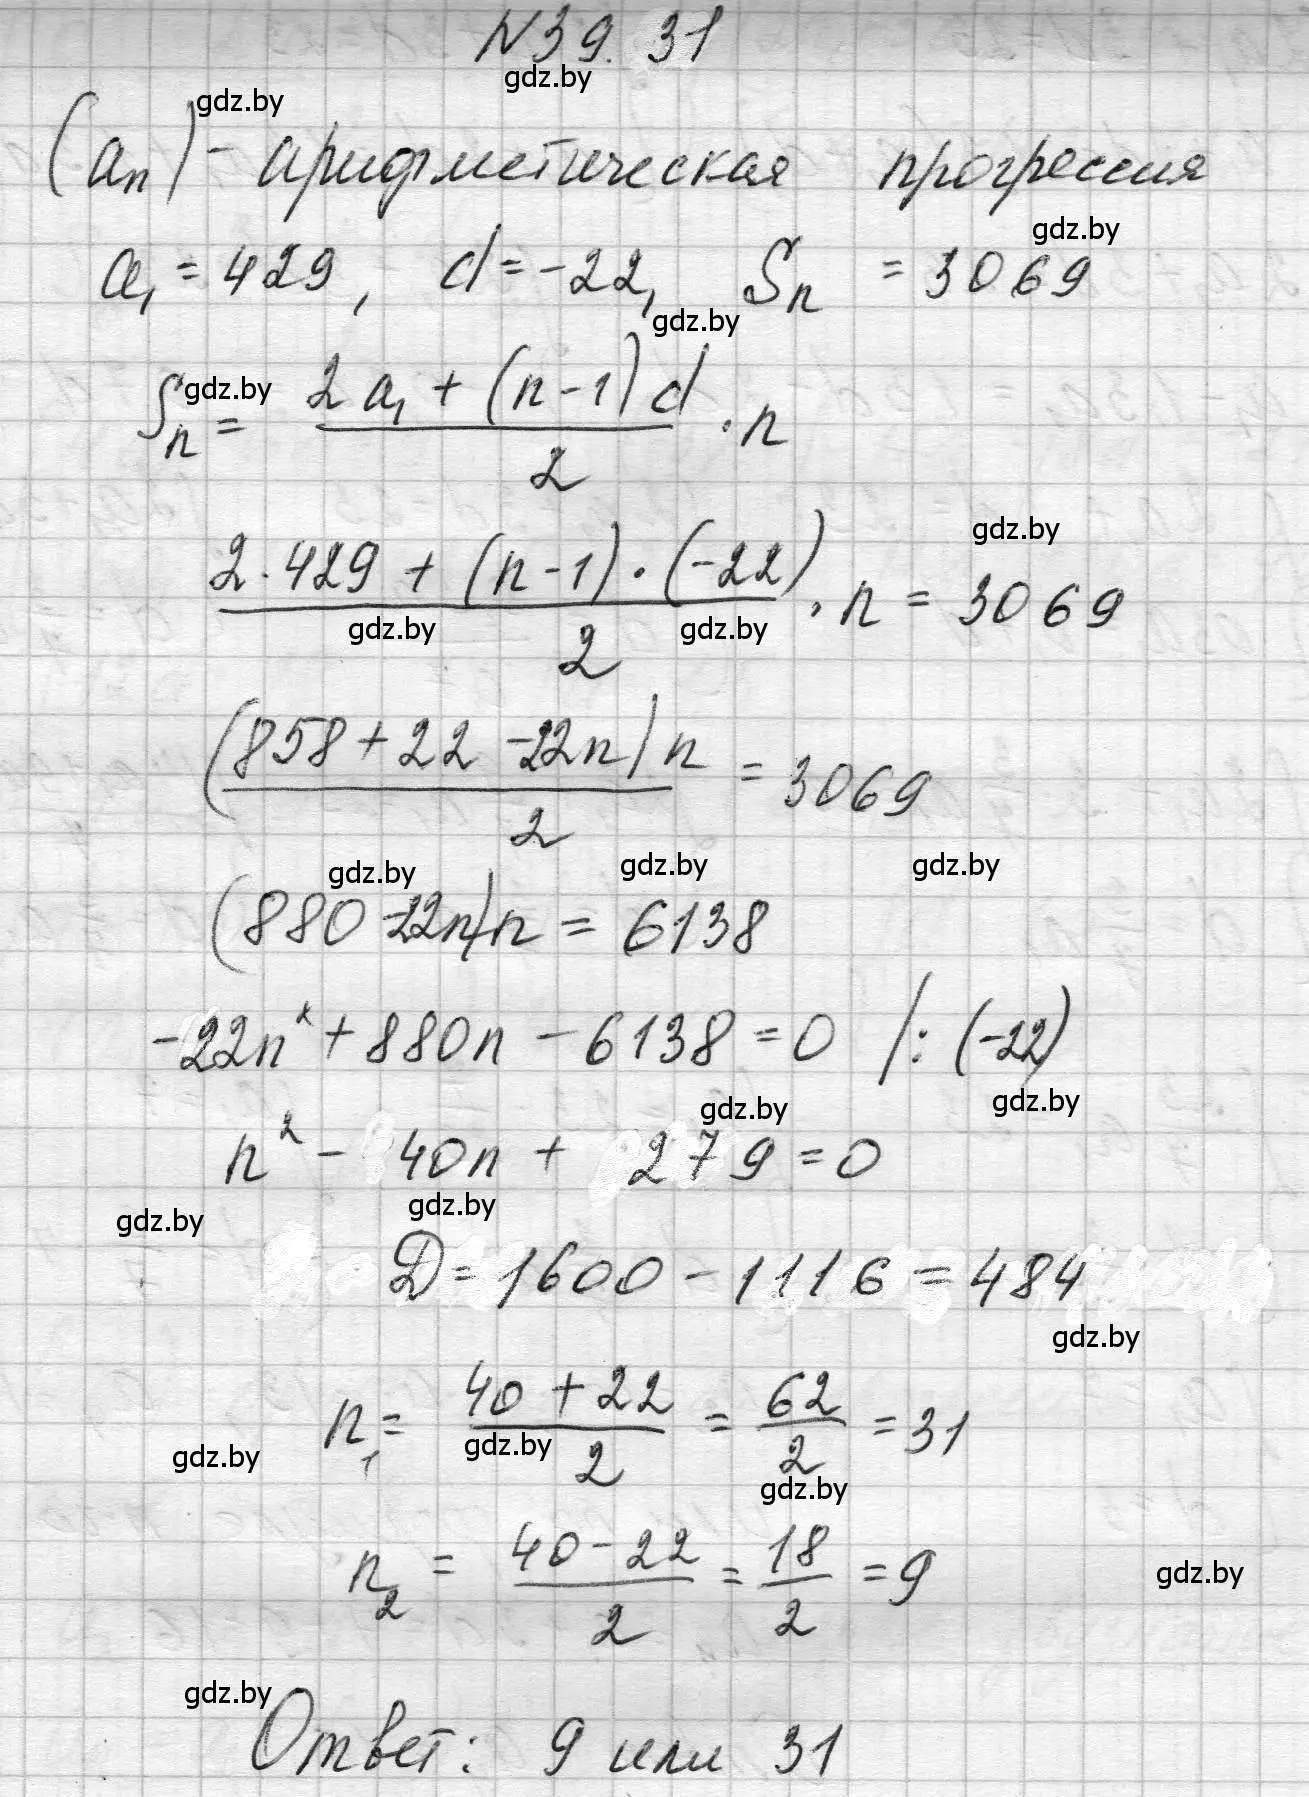 N39.31
gdz.by
gdz.by
(aₙ) - арифметическая прогрессия
gdz.by
a₁ = 429, d = -22, Sₙ = 3069
gdz.by
gdz.by
Sₙ = (2a₁ + (n-1)d)/2 · n
gdz.by
(2·429 + (n-1)·(-22))/2 · n = 3069
gdz.by gdz.by
((858 + 22 - 22n)n)/2 = 3069
gdz.by gdz.by gdz.by
(880 - 22n)n = 6138
-22n² + 880n - 6138 = 0 /: (-22)
gdz.by gdz.by
n² - 40n + 279 = 0
gdz.by gdz.by
D = 1600 - 1116 = 484
gdz.by
n₁ = (40 + 22)/2 = 62/2 = 31
gdz.by gdz.by gdz.by
n₂ = (40 - 22)/2 = 18/2 = 9
gdz.by
gdz.by
Ответ: 9 или 31